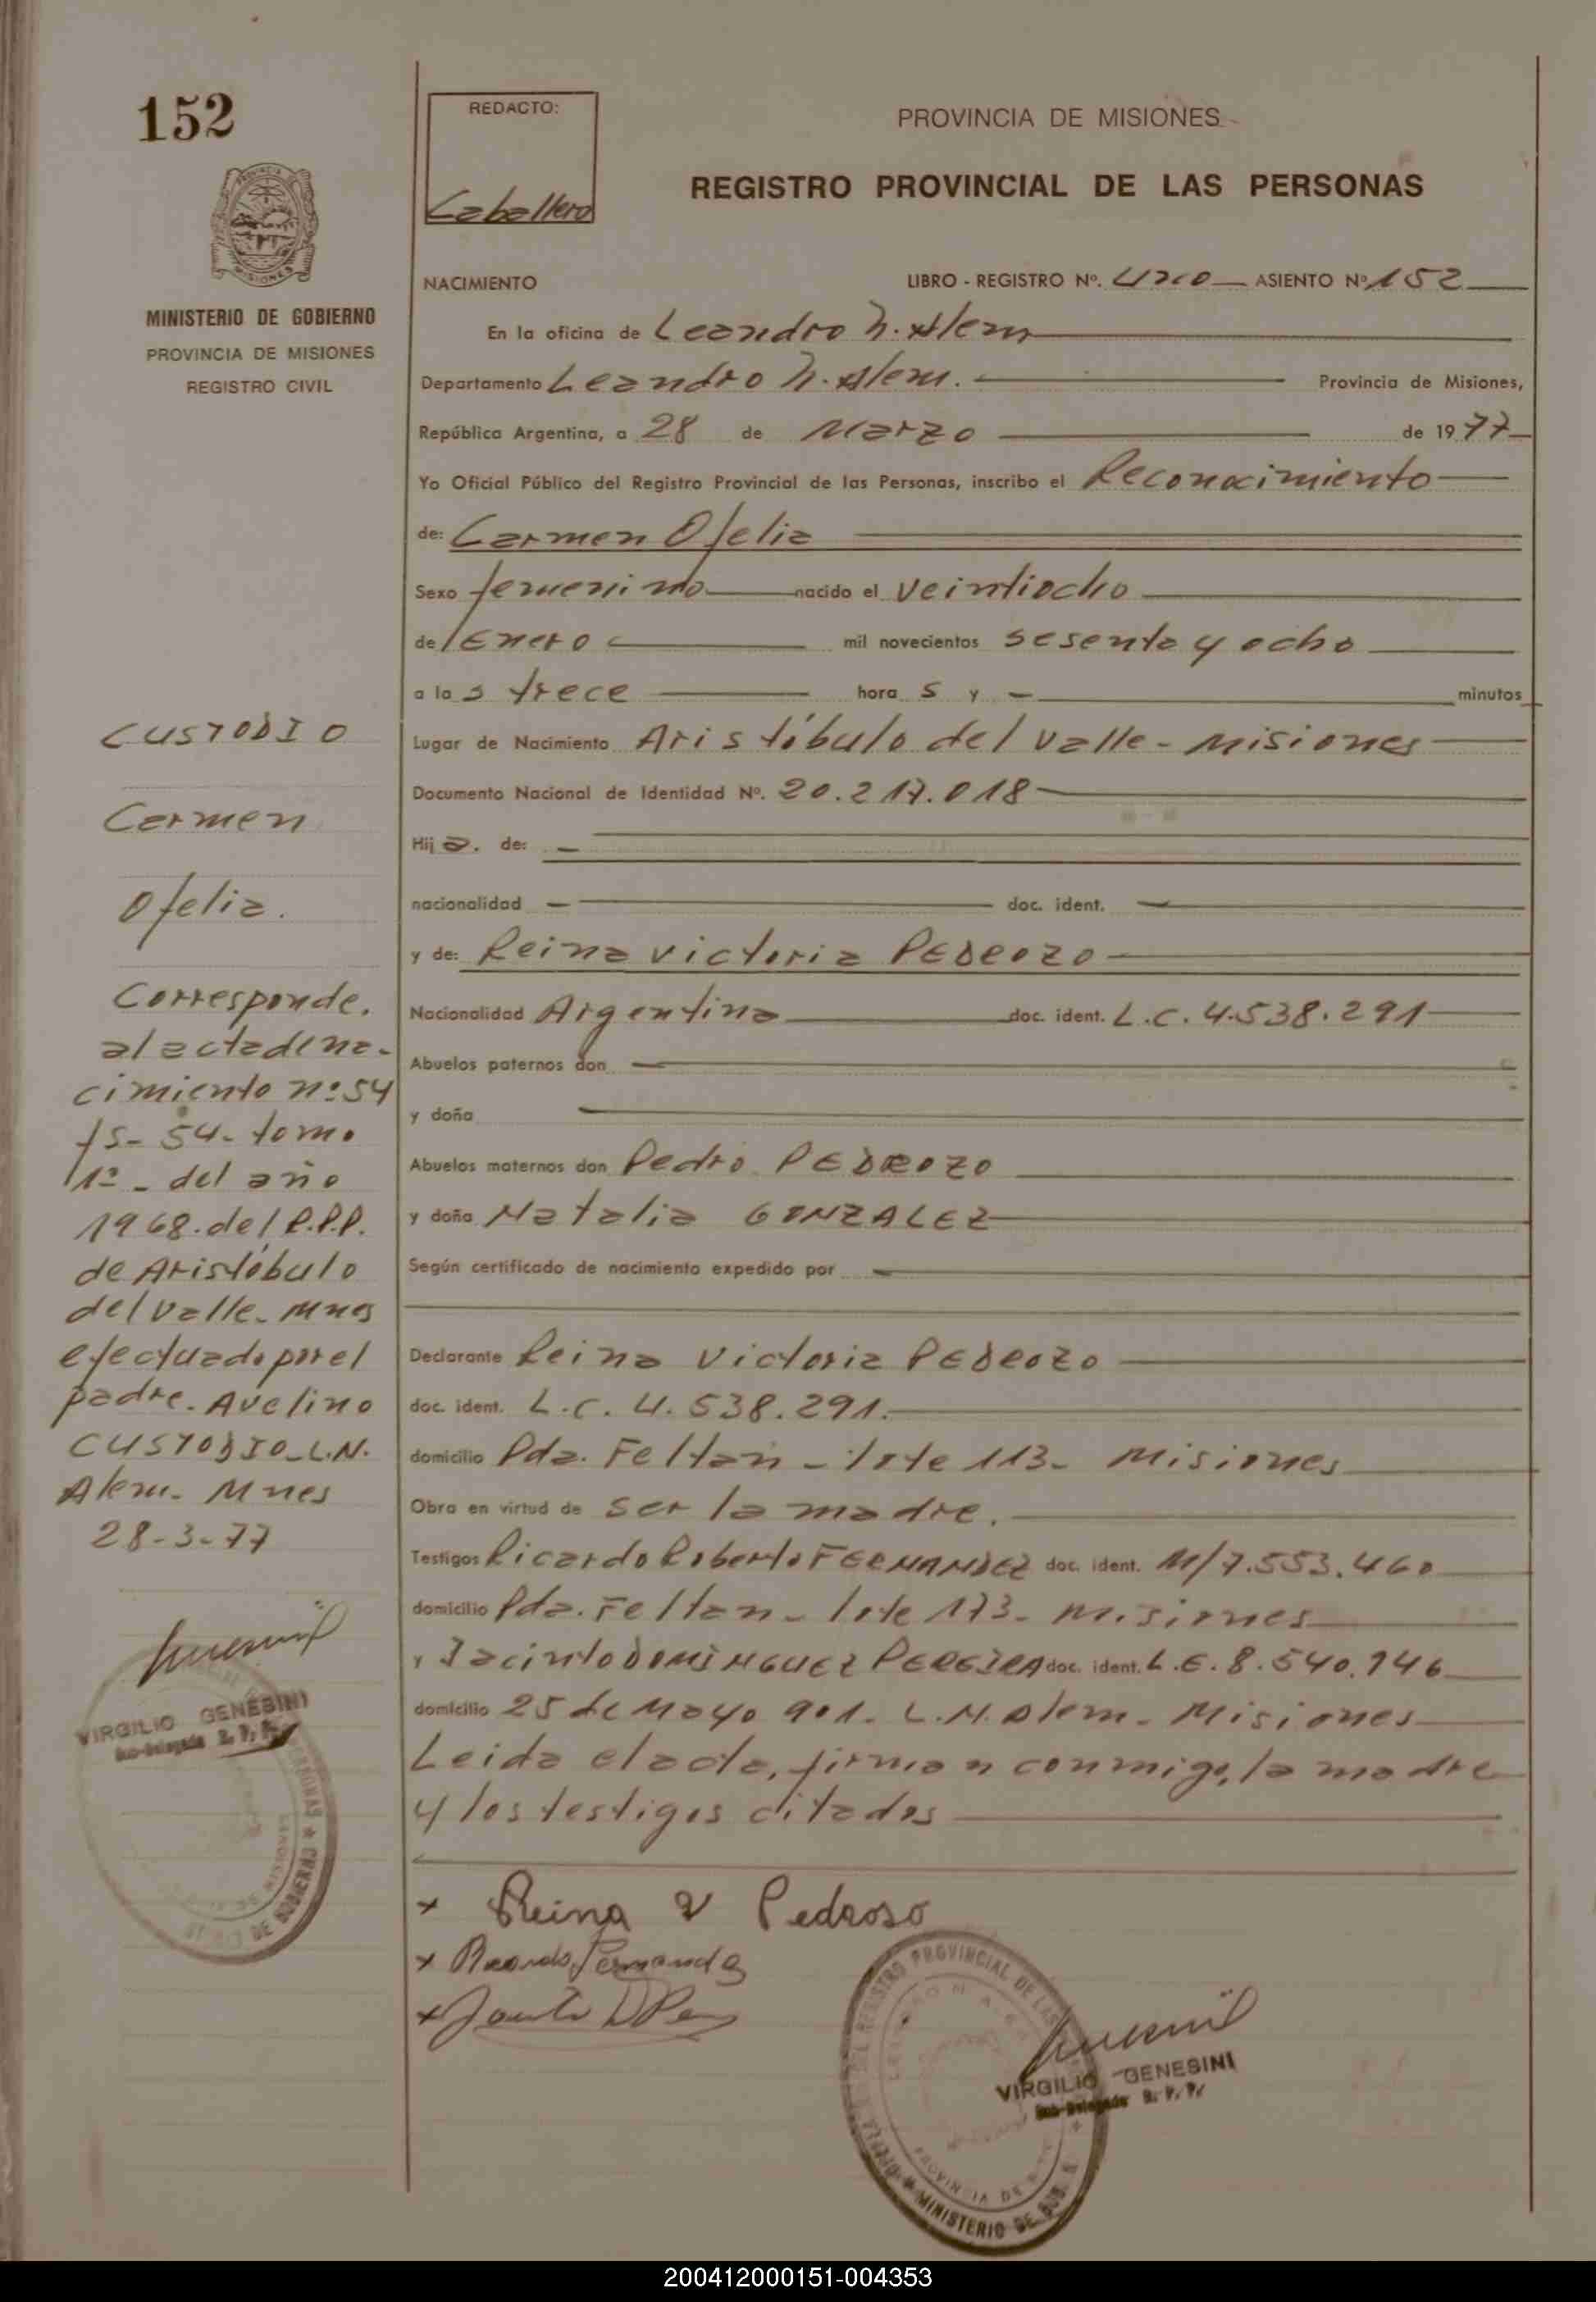 152
MINISTERIO DE GOBIERNO
PROVINCIA DE MISIONES
REGISTRO CIVIL
REDACTO:
Caballero
PROVINCIA DE MISIONES
REGISTRO PROVINCIAL DE LAS PERSONAS
NACIMIENTO LIBRO - REGISTRO Nº. Unico ASIENTO Nº 152
En la oficina de Leandro N. Alem
Departamento Leandro N. Alem. Provincia de Misiones,
República Argentina, a 28 de Marzo de 1977
Yo Oficial Público del Registro Provincial de las Personas, inscribo el Reconocimiento
de: Carmen Ofelia
Sexo femenino nacido el veintiocho
de Enero mil novecientos sesenta y ocho
a las trece horas y - minutos
Lugar de Nacimiento Aristóbulo del Valle - Misiones
Documento Nacional de Identidad Nº. 20.217.018
Hija. de: -
nacionalidad - doc. ident. -
y de: Reina Victoria PEDROZO
Nacionalidad Argentina doc. ident. L.C. 4.538.291
Abuelos paternos don
y doña
Abuelos maternos don Pedro PEDROZO
y doña Natalia GONZALEZ
Según certificado de nacimiento expedido por
Declarante Reina Victoria PEDROZO
doc. ident. L.C. 4.538.291.
domicilio Pda. Feltan - lote 113- Misiones
Obra en virtud de ser la madre.
Testigos Ricardo Roberto FERNANDEZ doc. ident. M/7.553.460
domicilio Pda. Feltan - lote 173- Misiones
y Jacinto DOMINGUEZ PEREIRA doc. ident. L.E. 8.540.746
domicilio 25 de Mayo 901. L.N. Alem - Misiones
Leida el acta, firman conmigo, la madre
y los testigos citados
x Reina V Pedroso
x Ricardo Fernandez
CUSTODIO
Carmen
Ofelia.
Corresponde.
al acta de na-
cimiento nº 54
fs- 54- tomo
1º - del año
1968. del R.P.P.
de Aristóbulo
del Valle. Mnes
efectuado por el
padre. Avelino
CUSTODIO_L.N.
Alem. Mnes
28-3-77
VIRGILIO GENESINI
Sub-Delegado R. P. P.
VIRGILIO GENESINI
Sub-Delegado R. P. P.
REGISTRO PROVINCIAL DE LAS
PROVINCIA DE
MINISTERIO DE GOB.
200412000151-004353